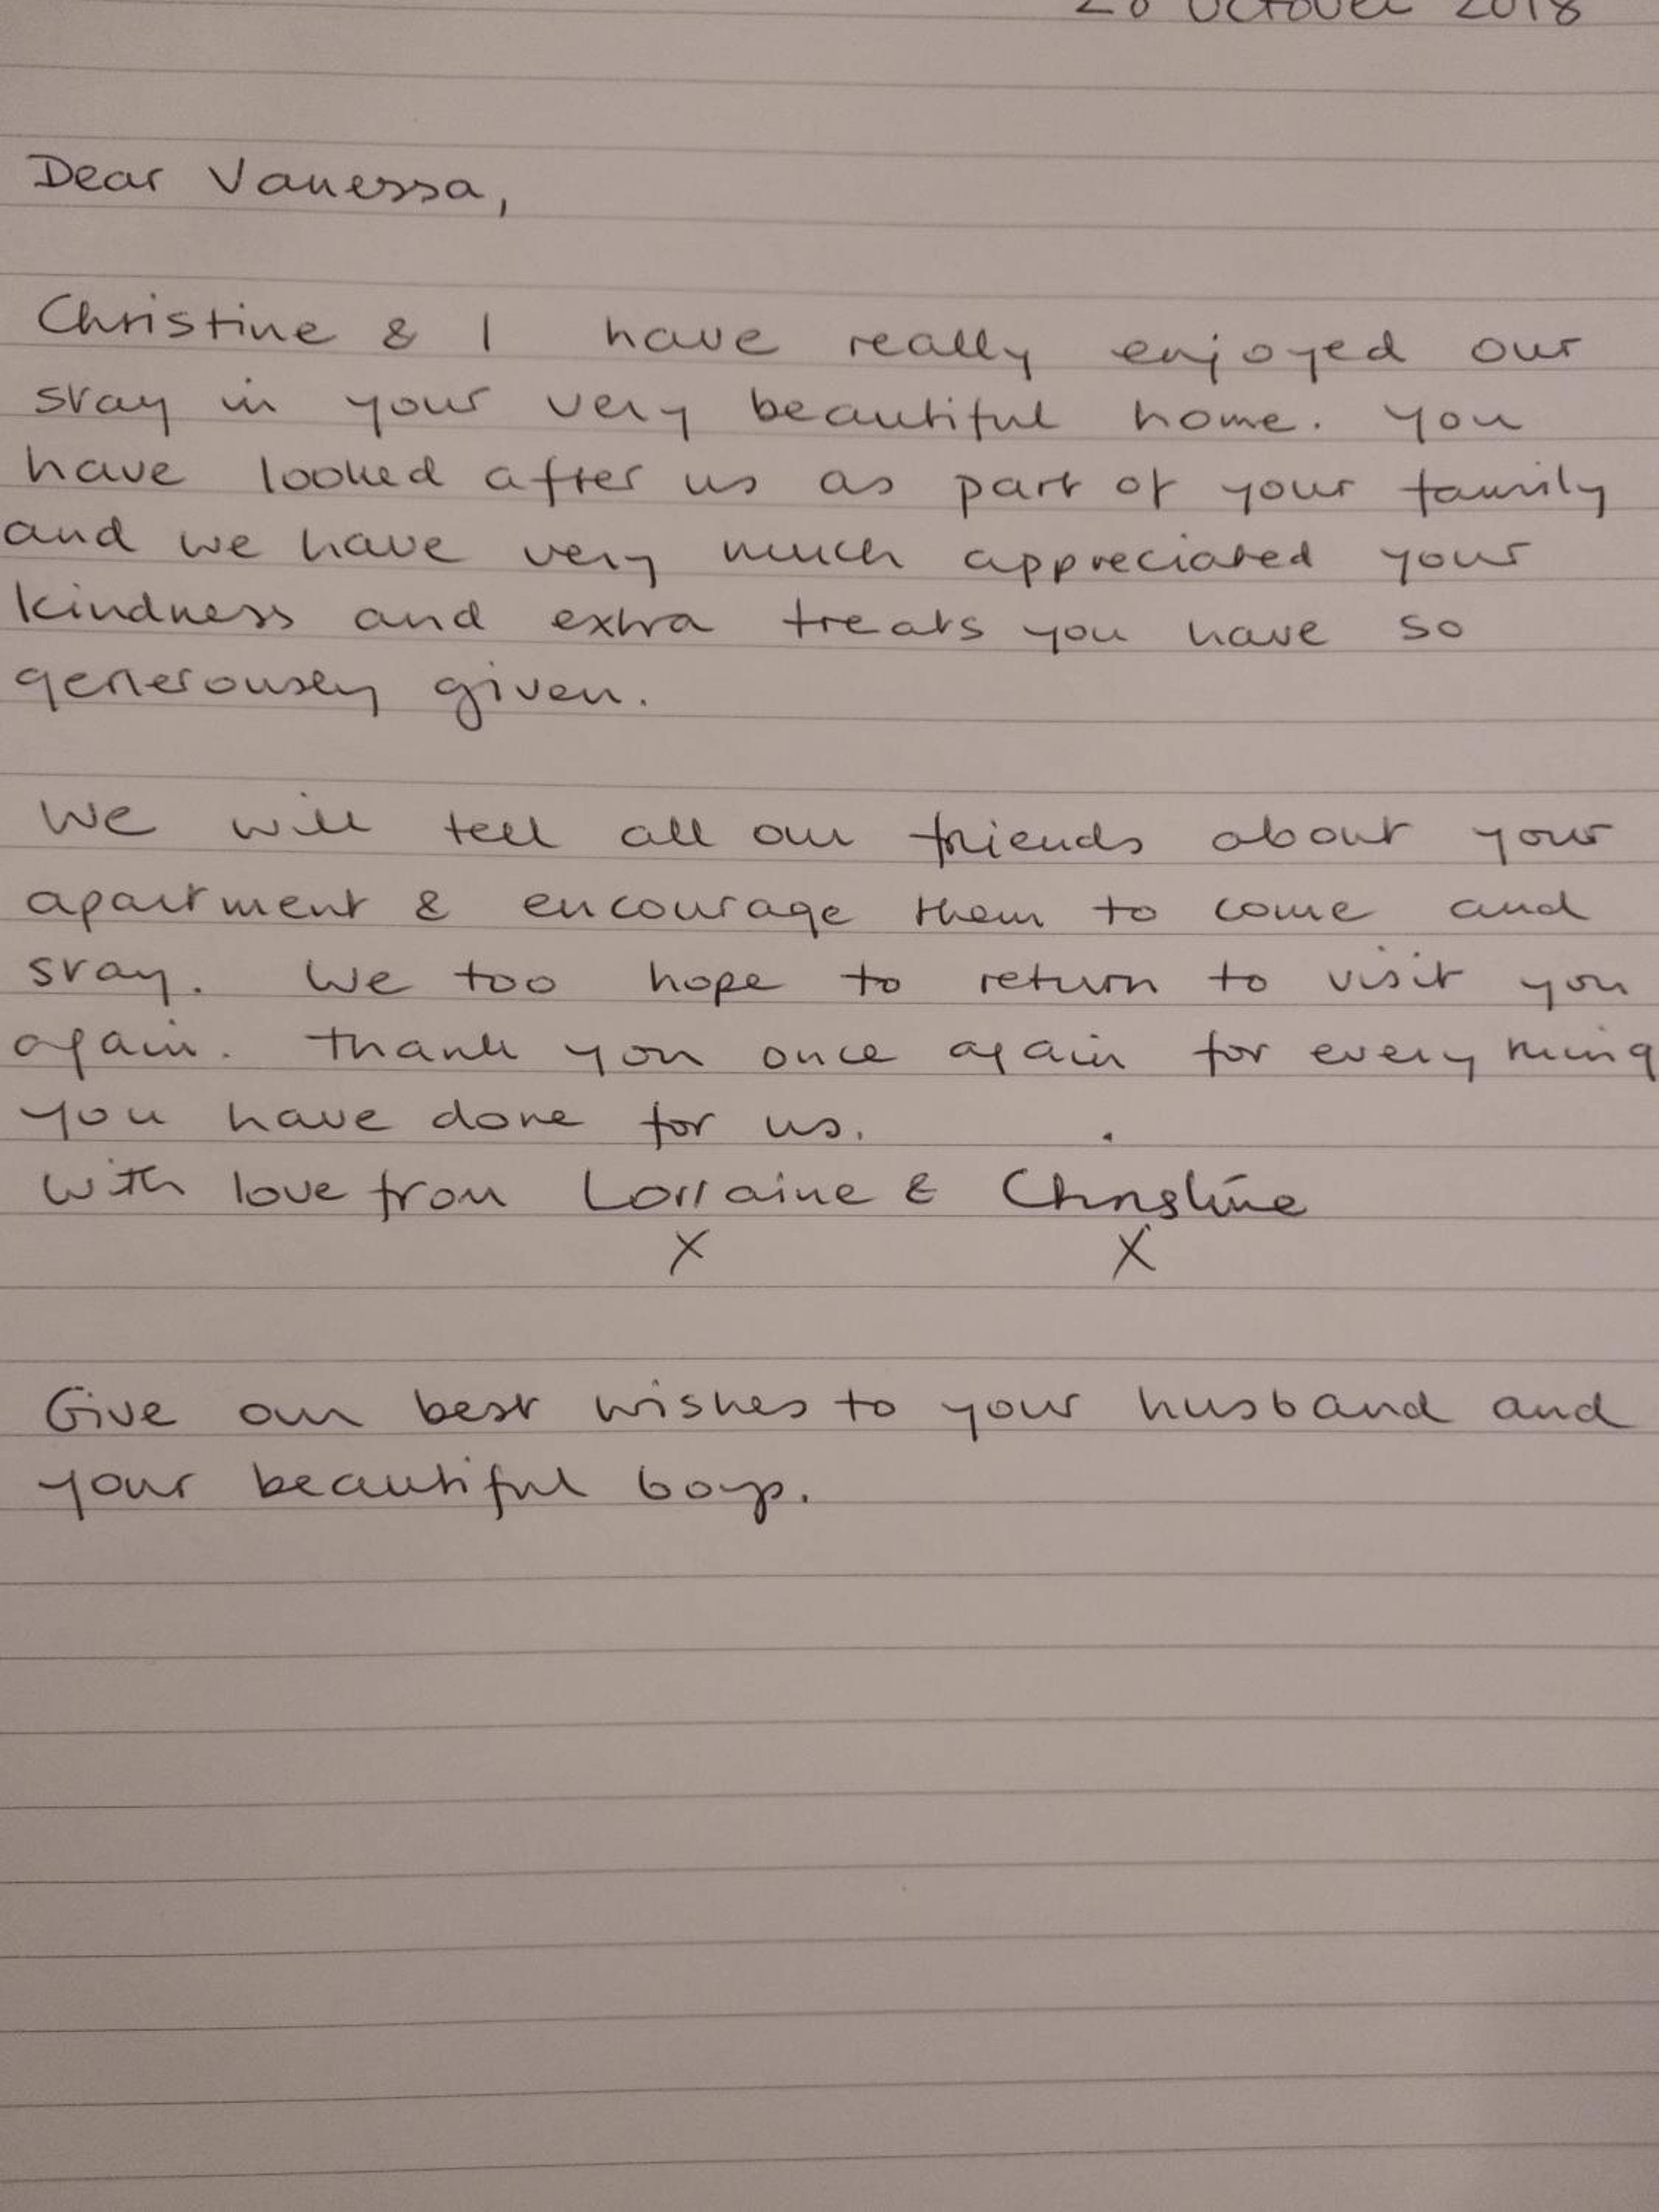 October 2018
Dear Vanessa,
Christine & I have really enjoyed our
stay in your very beautiful home. You
have looked after us as part of your family
and we have very much appreciated your
kindness and extra treats you have so
generously given.
We will tell all our friends about your
apartment & encourage them to come and
stay. We too hope to return to visit you
again. Thank you once again for everything
you have done for us.
With love from Lorraine & Christine
X X
Give our best wishes to your husband and
your beautiful boys.